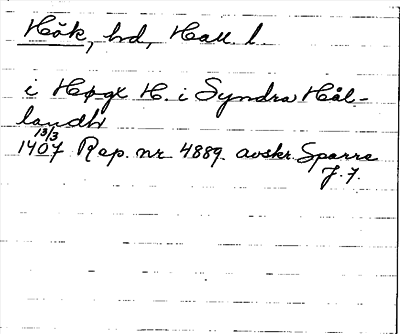 Hök, hd, Hall. l.
i Høgx H. i Syndra Hal-
landh
13/3
1407 Rep. nr 4889. avskr. Sparre
J. 7.